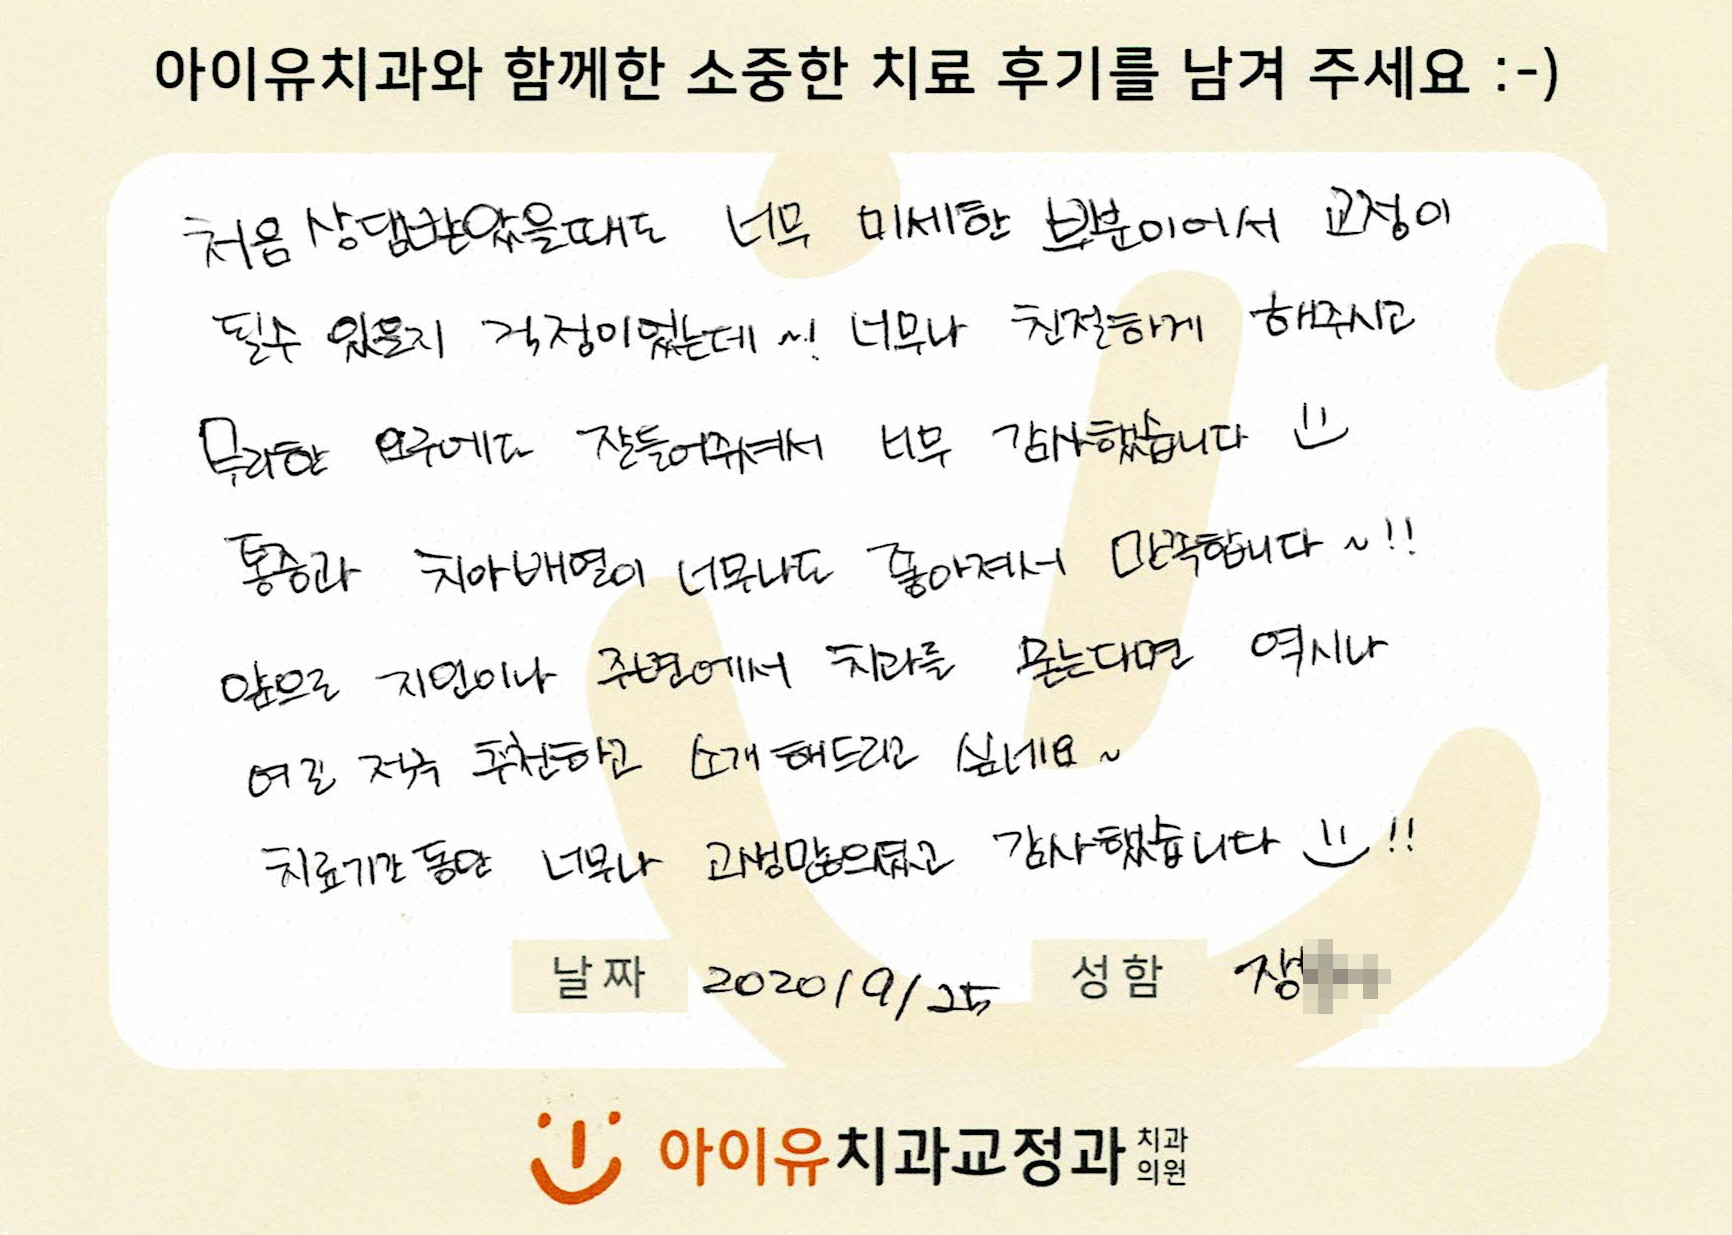 아이유치과와 함께한 소중한 치료 후기를 남겨 주세요 :-)
처음 상담받았을때도 너무 미세한 부분이어서 교정이
될수 있을지 걱정이었는데~! 너무나 친절하게 해주시고
무리한 요구에도 잘들어주셔서 너무 감사했습니다
통증과 치아배열이 너무나도 좋아져서 만족합니다~!!
앞으로 지인이나 주변에서 치과를 묻는다면 역시나
적극 추천하고 소개해드리고 싶네요~
치료기간동안 너무나 고생많으셨고 감사했습니다 !!
날짜 2020/9/25 성함
아이유치과교정과 치과
의원